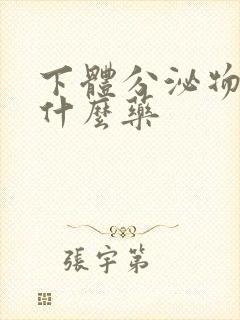 下體分泌物
什麼藥
張宇第